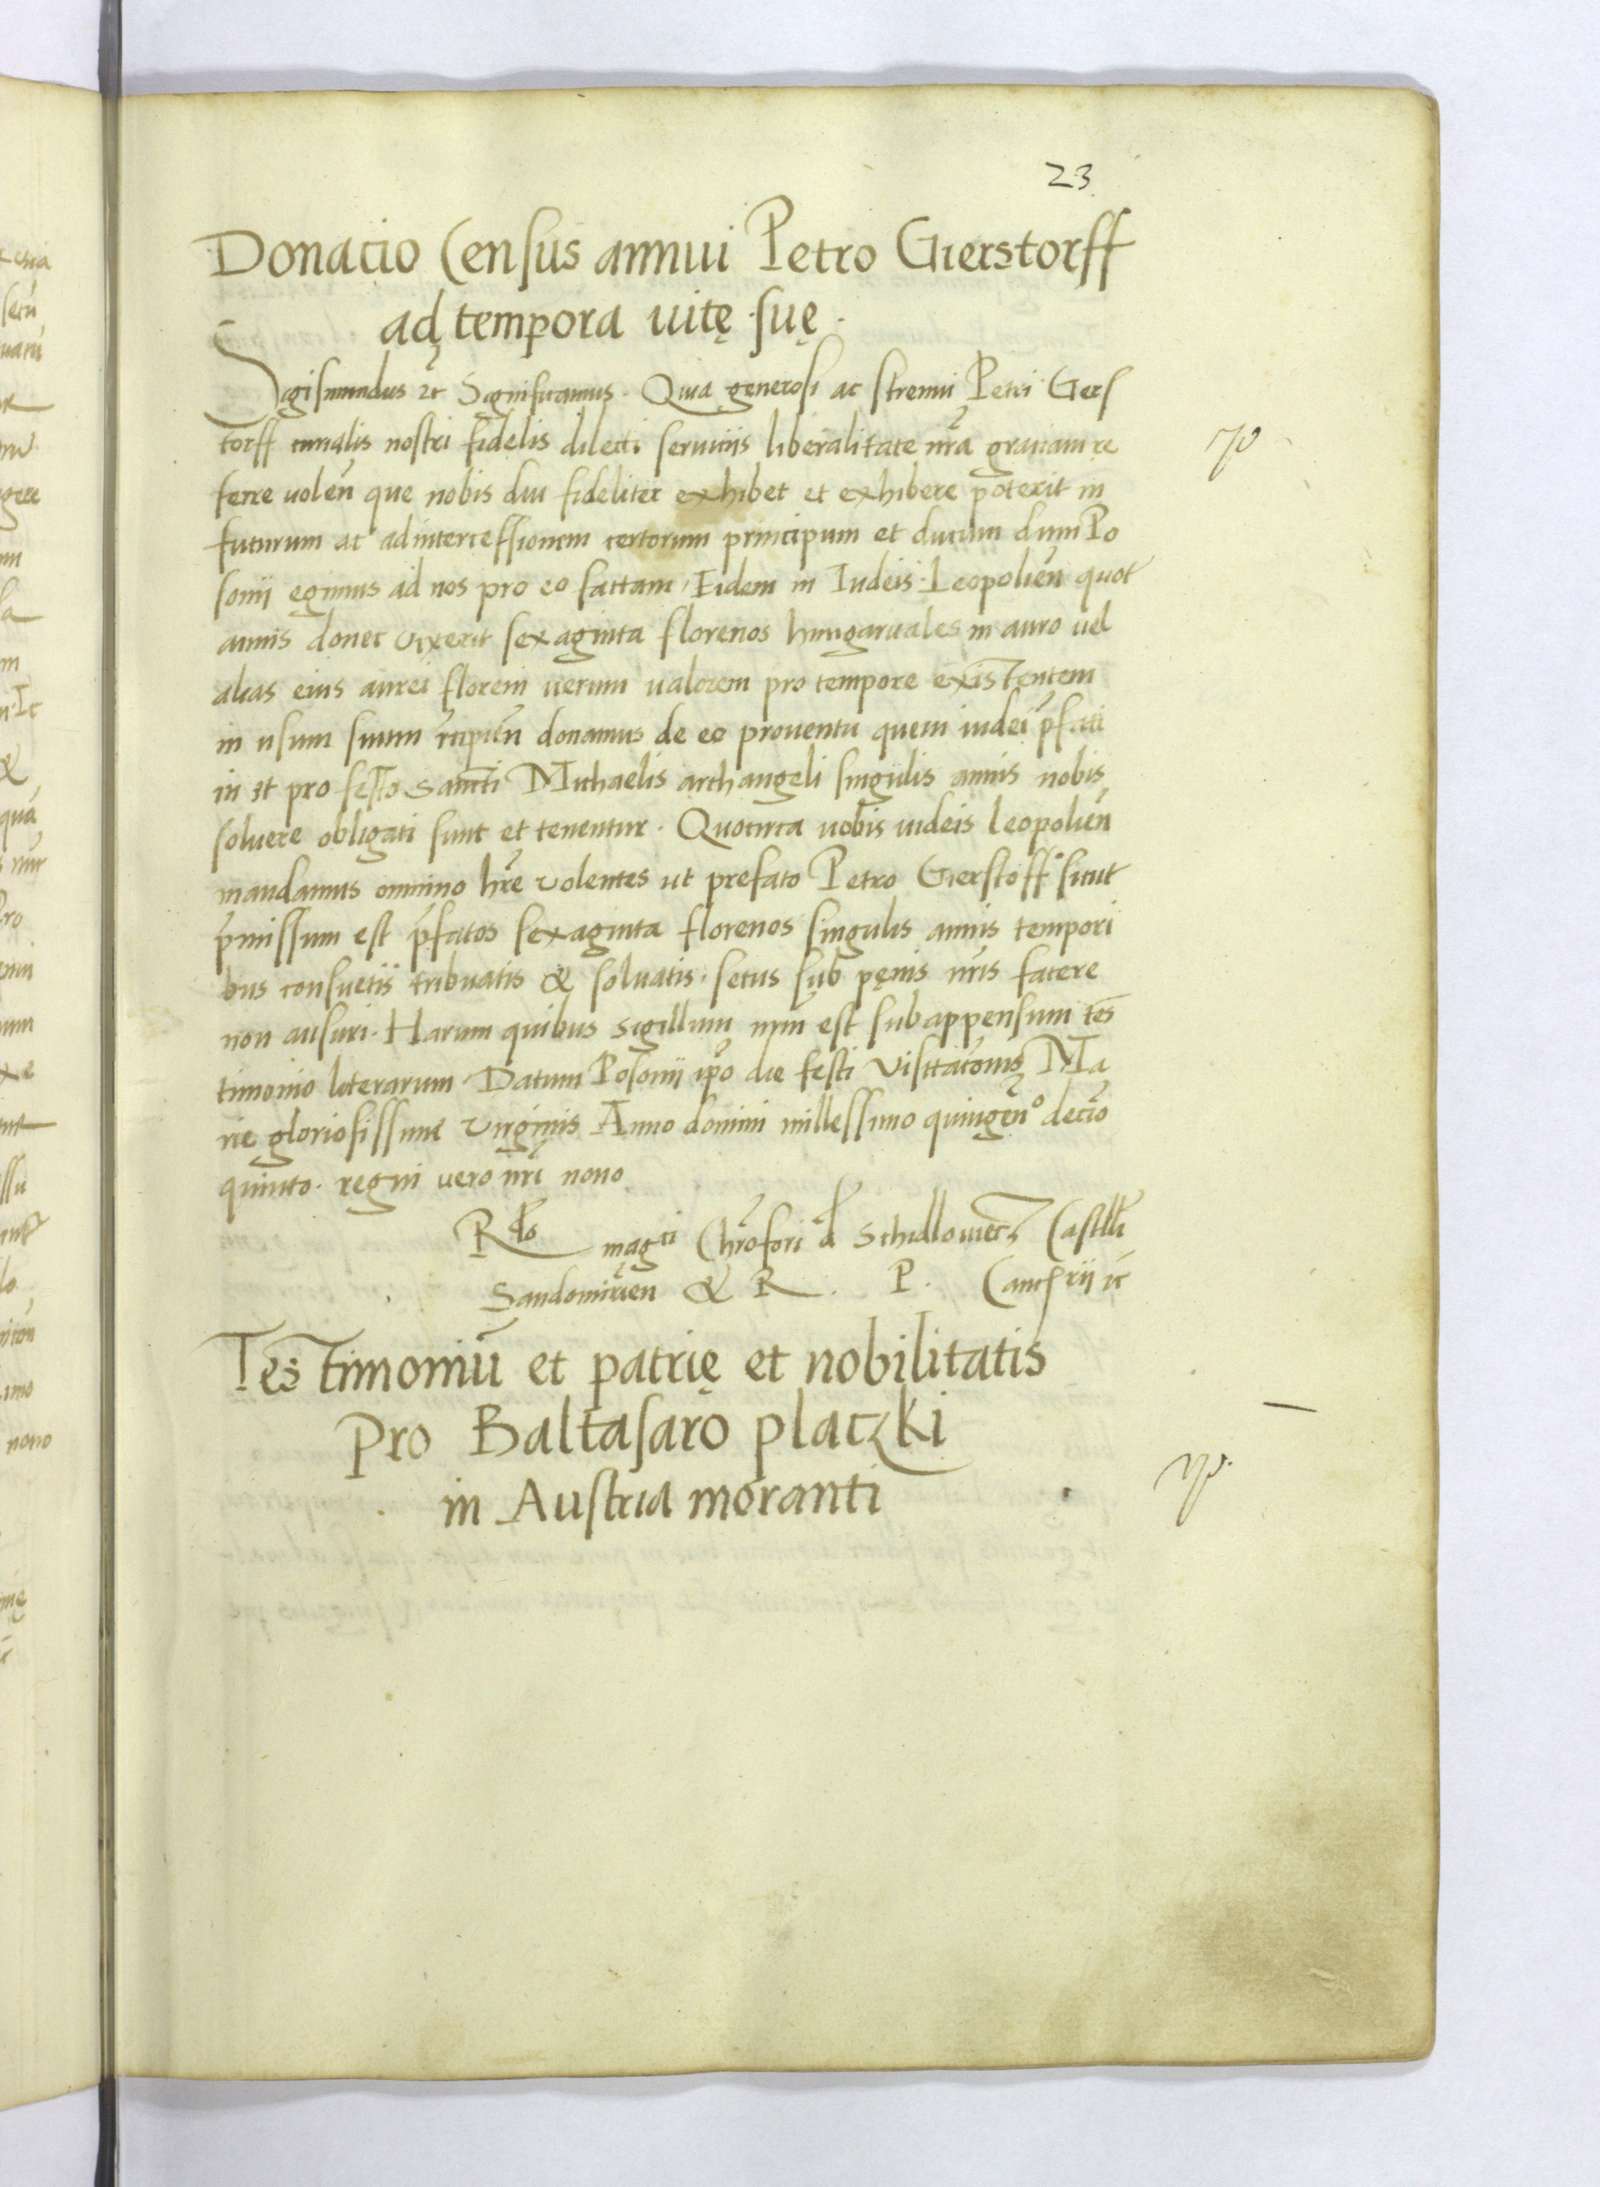 23
Donacio Census annui Petro Gierstorff
ad tempora uitę suę.
Sigismundus &c Significamus. Quia generosi ac strenui Petri Gers
torff curialis nostri fidelis dilecti seruiciis liberalitate nr̃a graciam re
ferre uolen̄ que nobis diu fideliter exhibet et exhibere poterit in
futurum ac ad intercessionem certorum principum et ducum dum Po
sonii egimus ad nos pro eo factam, Eidem in Iudeis Leopolien̄ quot
annis donec vixerit sexaginta florenos hungaricales in auro uel
alias eius aurei floreni uerum valorem pro tempore existentem
in usum suum r̄cipien̄ donamus de eo prouentu quem iudei p̄fati
in et pro festo Sancti Michaelis archangeli singulis annis nobis
soluere obligati sunt et tenentur. Quocirca uobis iudeis leopolien̄
mandamus omnino hr̄e volentes ut prefato Petro Gierstoff sicut
p̄missum est p̄fatos sexaginta florenos singulis annis tempori
bus consuetis tribuatis & soluatis. secus sub pęnis nr̄is facere
non ausuri. Harum quibus sigillum nr̄m est subappensum tes
timonio literarum. Datum Posonii ip̄o die festi Visitac̄onis Ma
rie gloriosissime Virginis Anno domini millessimo quingen̄o decīo
quinto. regni vero nr̄i nono
Rlo magci Chr̄ofori d Schidlowiecz Castlli
Sandomirien̄ & R. P. Cancrii &c
Testimoniū et patrię et nobilitatis
pro Baltasaro placzki
in Austria moranti